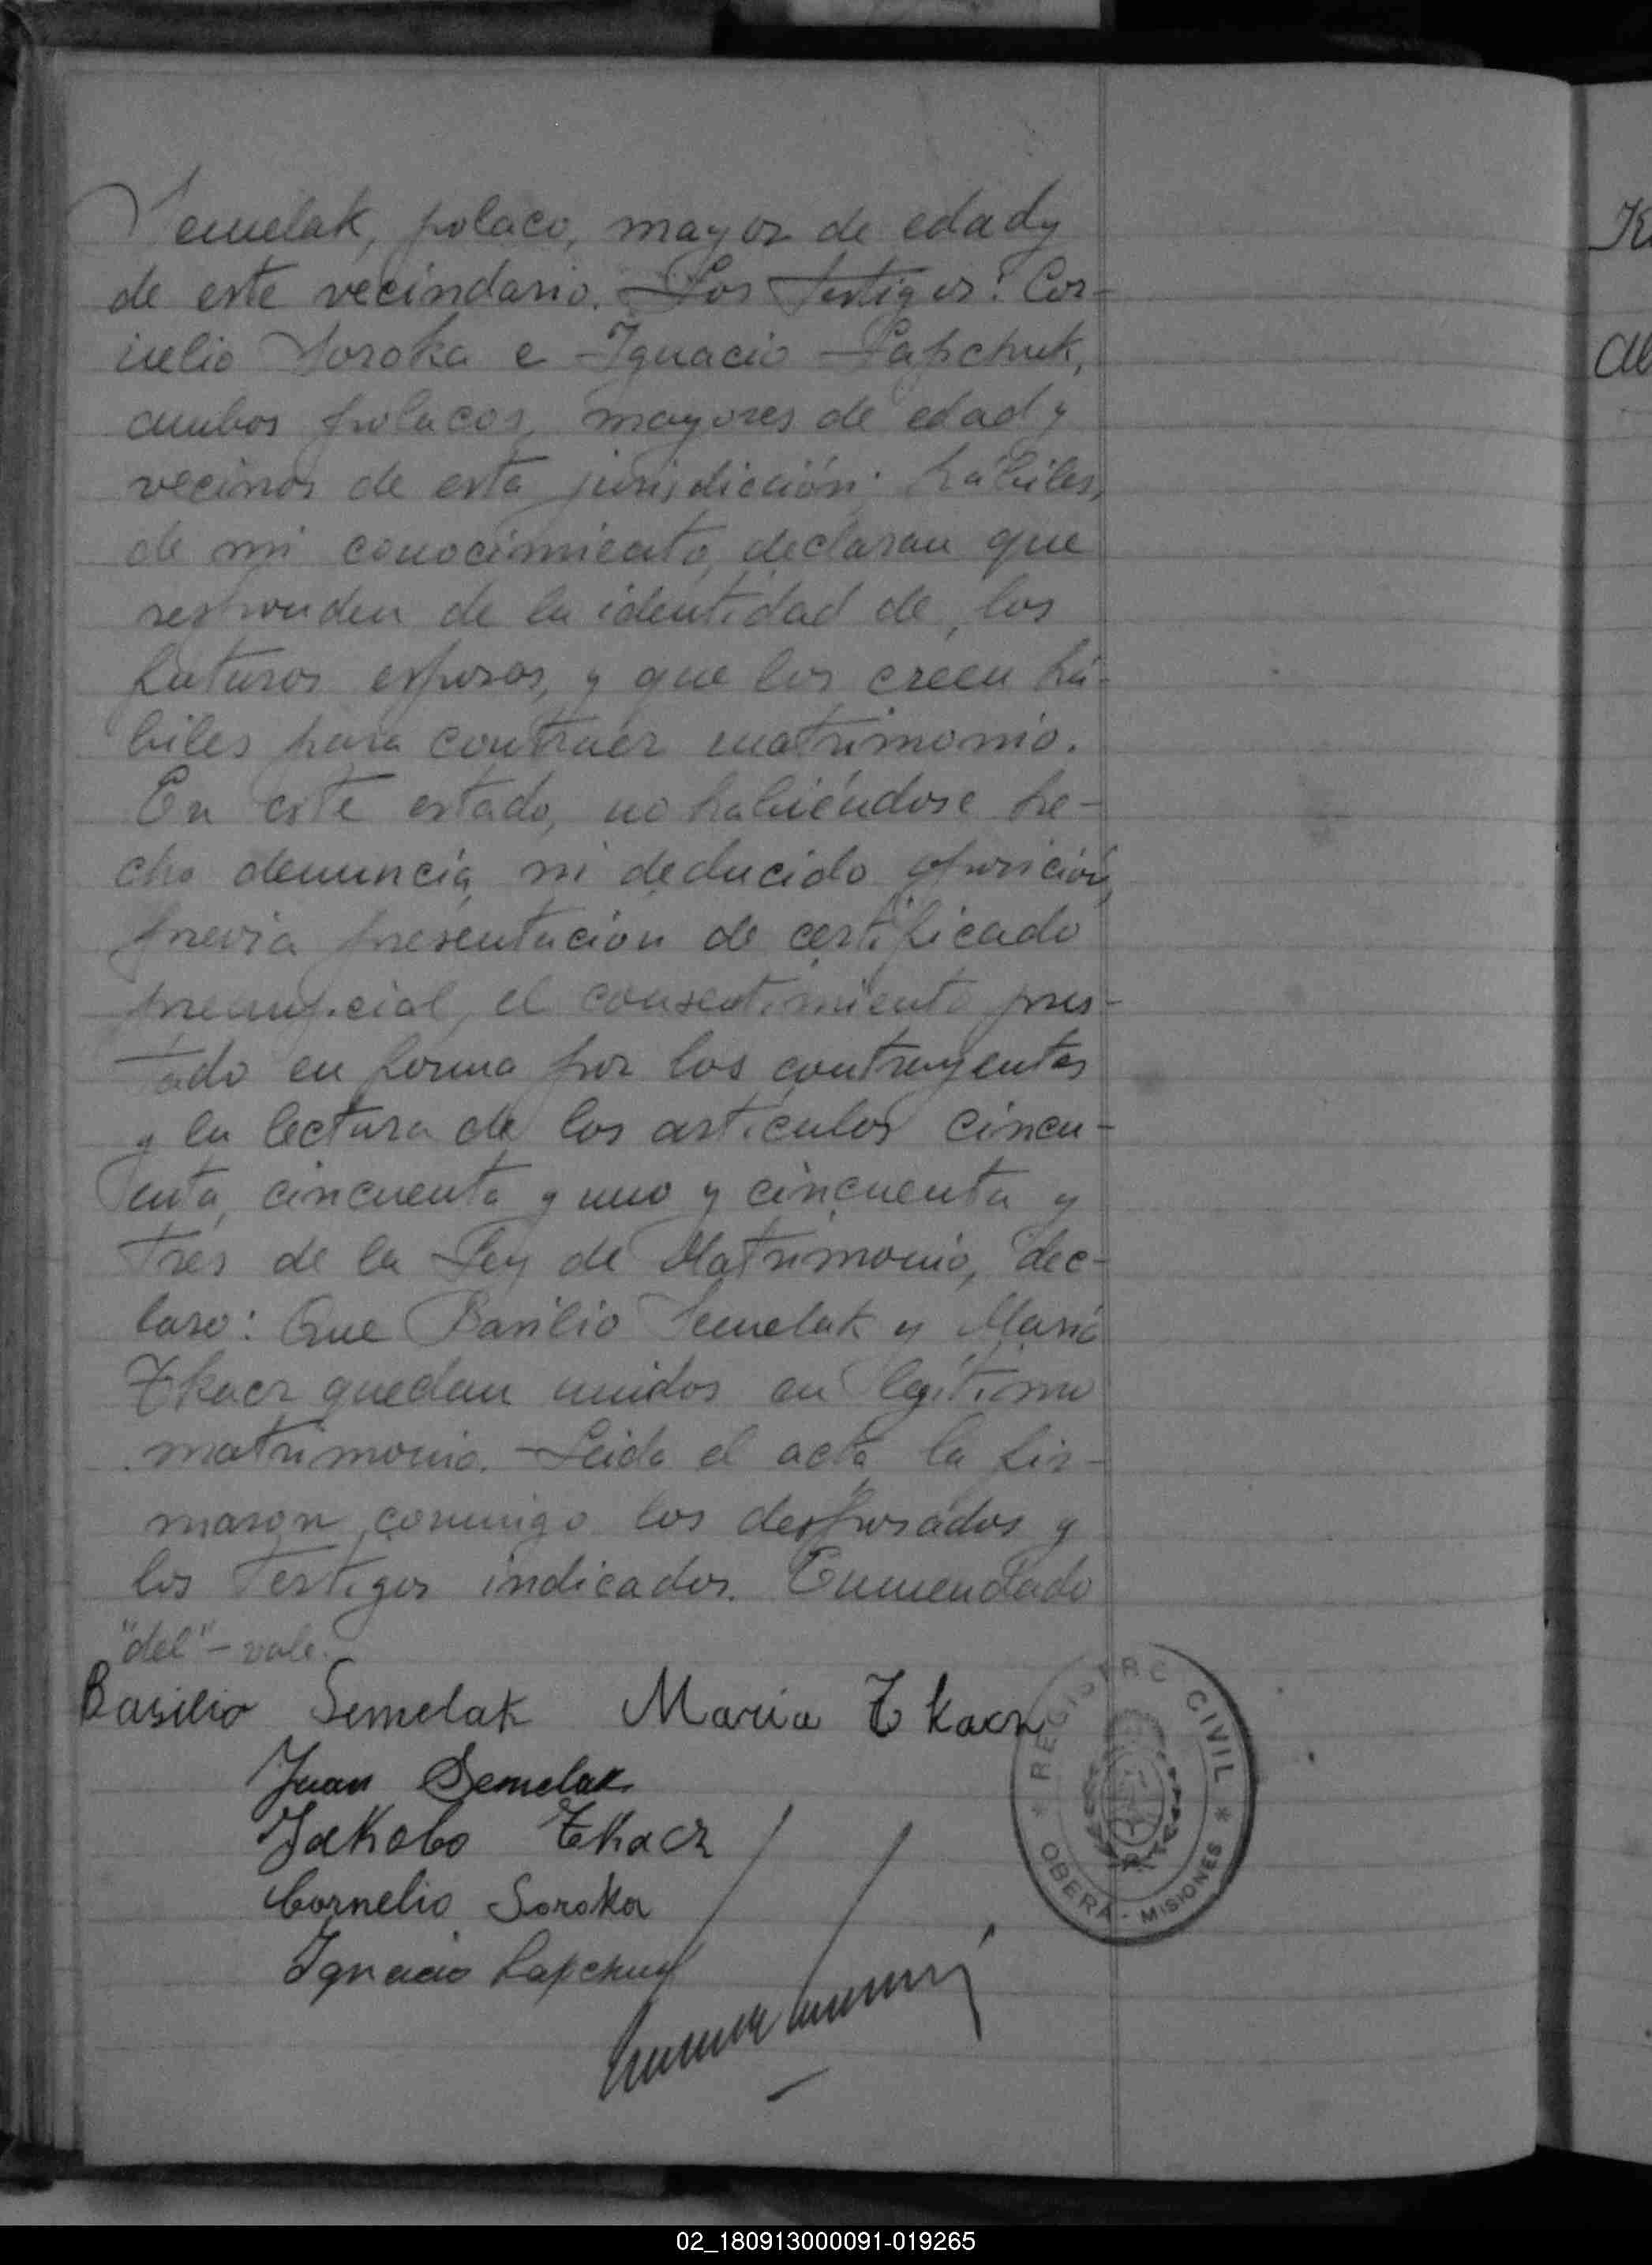 Semelak, polaco, mayor de edad y
de este vecindario. Los testigos: Cor-
nelio Soroka e Ignacio Lapchuk,
ambos polacos, mayores de edad y
vecinos de esta jurisdicción; hábiles,
de mi conocimiento, declaran que
responden de la identidad de los
futuros esposos, y que los creen há-
biles para contraer matrimonio.
En este estado, no habiéndose he-
cho denuncia ni deducido oposición,
previa presentación de certificado
prenupcial, el consentimiento pres-
tado en forma por los contrayentes
y la lectura de los artículos cincu-
enta, cincuenta y uno y cincuenta y
tres de la Ley de Matrimonio, dec-
laro: Que Basilio Semelak y María
Tkacz quedan unidos en legítimo
matrimonio. Leida el acta la fir-
maron conmigo los desposados y
los testigos indicados. Enmendado
"del" - vale.
Basilio Semelak Maria Tkacz
Juan Semelak
Jakobo Tkacz
Cornelio Soroka
Ignacio Lapchuk
* REGISTRO CIVIL *
OBERÁ - MISIONES
02_180913000091-019265